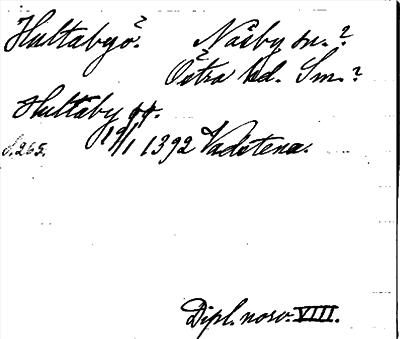 Hultabyö? Näsby sn.?
Östra hd. Sm.?
Hultaby
19/1 1392 Vadstena.
s. 265.
Dipl. norv. VIII.